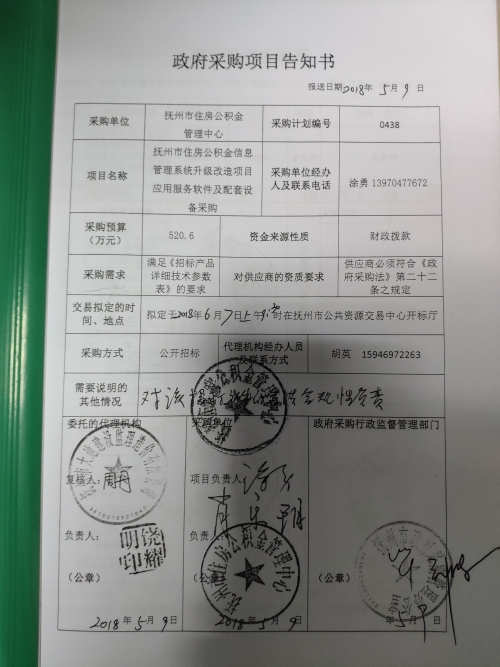 政府采购项目告知书
报送日期2018年 5月 9日
采购单位 抚州市住房公积金 管理中心 采购计划编号 0438
项目名称 抚州市住房公积金信息 管理系统升级改造项目 应用服务软件及配套设 备采购 采购单位经办 人及联系电话 涂勇 13970477672
采购预算 （万元） 520.6 资金来源性质 财政拨款
采购需求 满足《招标产品 详细技术参数 表》的要求 对供应商的资质要求 供应商必须符合《政 府采购法》第二十二 条之规定
交易拟定的时 间、地点 拟定于2018年6月7日上午9:30时在抚州市公共资源交易中心开标厅
采购方式 公开招标 代理机构经办人员 及联系方式 胡英 15946972263
需要说明的 其他情况 对该招标
委托的代理机构 采购单位 政府采购行政监督管理部门
复核人： 项目负责人：
负责人： 负责人：
饶耀明印
抚州市住房公积金管理中心
（公章） （公章） （公章）
2018年5月9日 2018年5月9日 5月9日